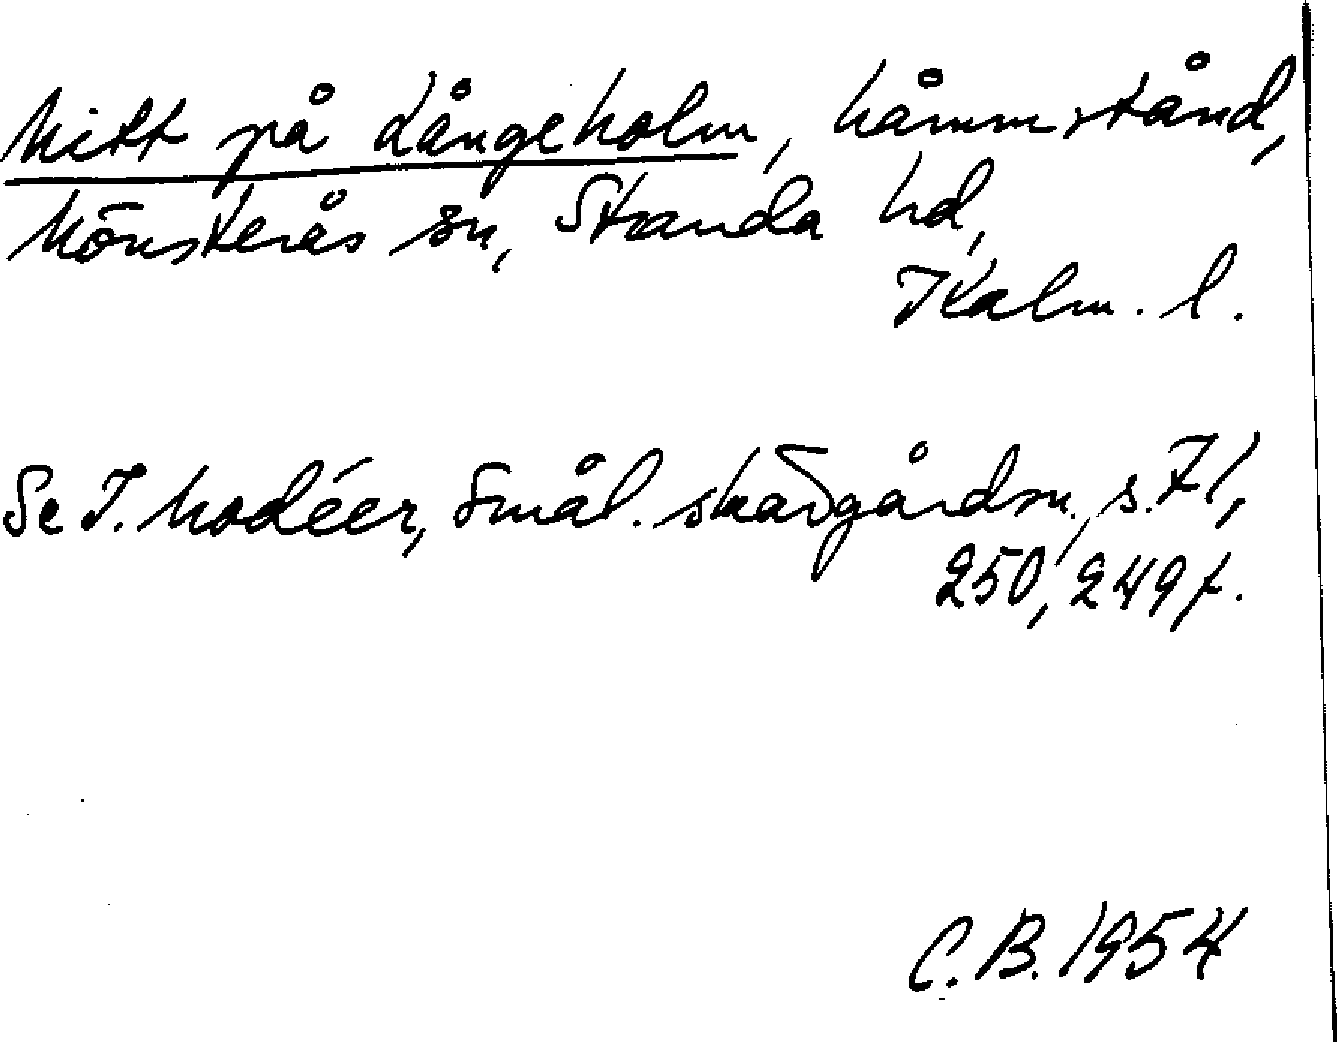 Mitt på Långeholm, håmmstånd,
Mönsterås sn, Stranda hd,
Kalm. l.
Se I. Modéer, Smål. skärgårdsn., s. 71,
250, 249 f.
C.B. 1954